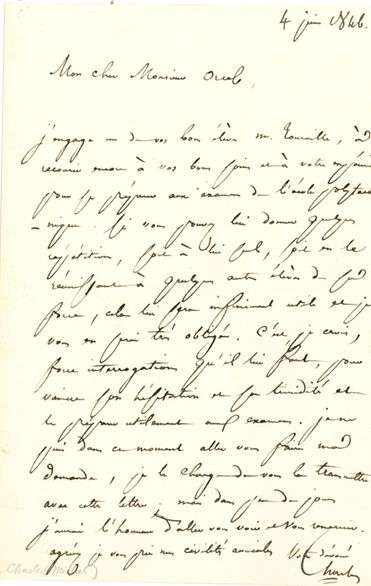 4 juin 1846.
Mon cher Monsieur
j'engage un de vos bons élèves M. à
recourir encore à vos bons soins et à votre
pour se préparer aux examens de l'école polytech
-nique. Si vous pouvez lui donner quelques
répétitions, soit à lui seul, soit en le
réunissant à quelques autres élèves de sa
force, cela lui sera infiniment utile et je
vous en serai très obligé. C'est, je crois,
force interrogations qu'il lui faut, pour
vaincre son hésitation et sa timidité et
le préparer utilement aux examens. je ne
puis dans ce moment aller vous faire ma
demande, je le charge de vous la transmettre
avec cette lettre. mais dans peu de jours
j'aurai l'honneur d'aller vous voir et vous remercier.
agréez je vous prie mes civilités amicales Votre dévoué
Chasles